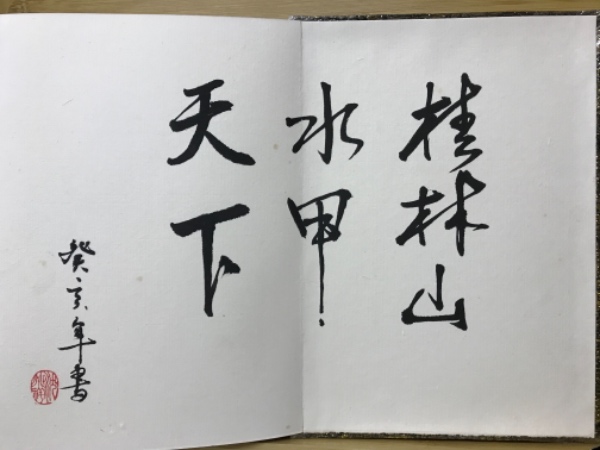 桂林山
水甲
天下
癸亥年书